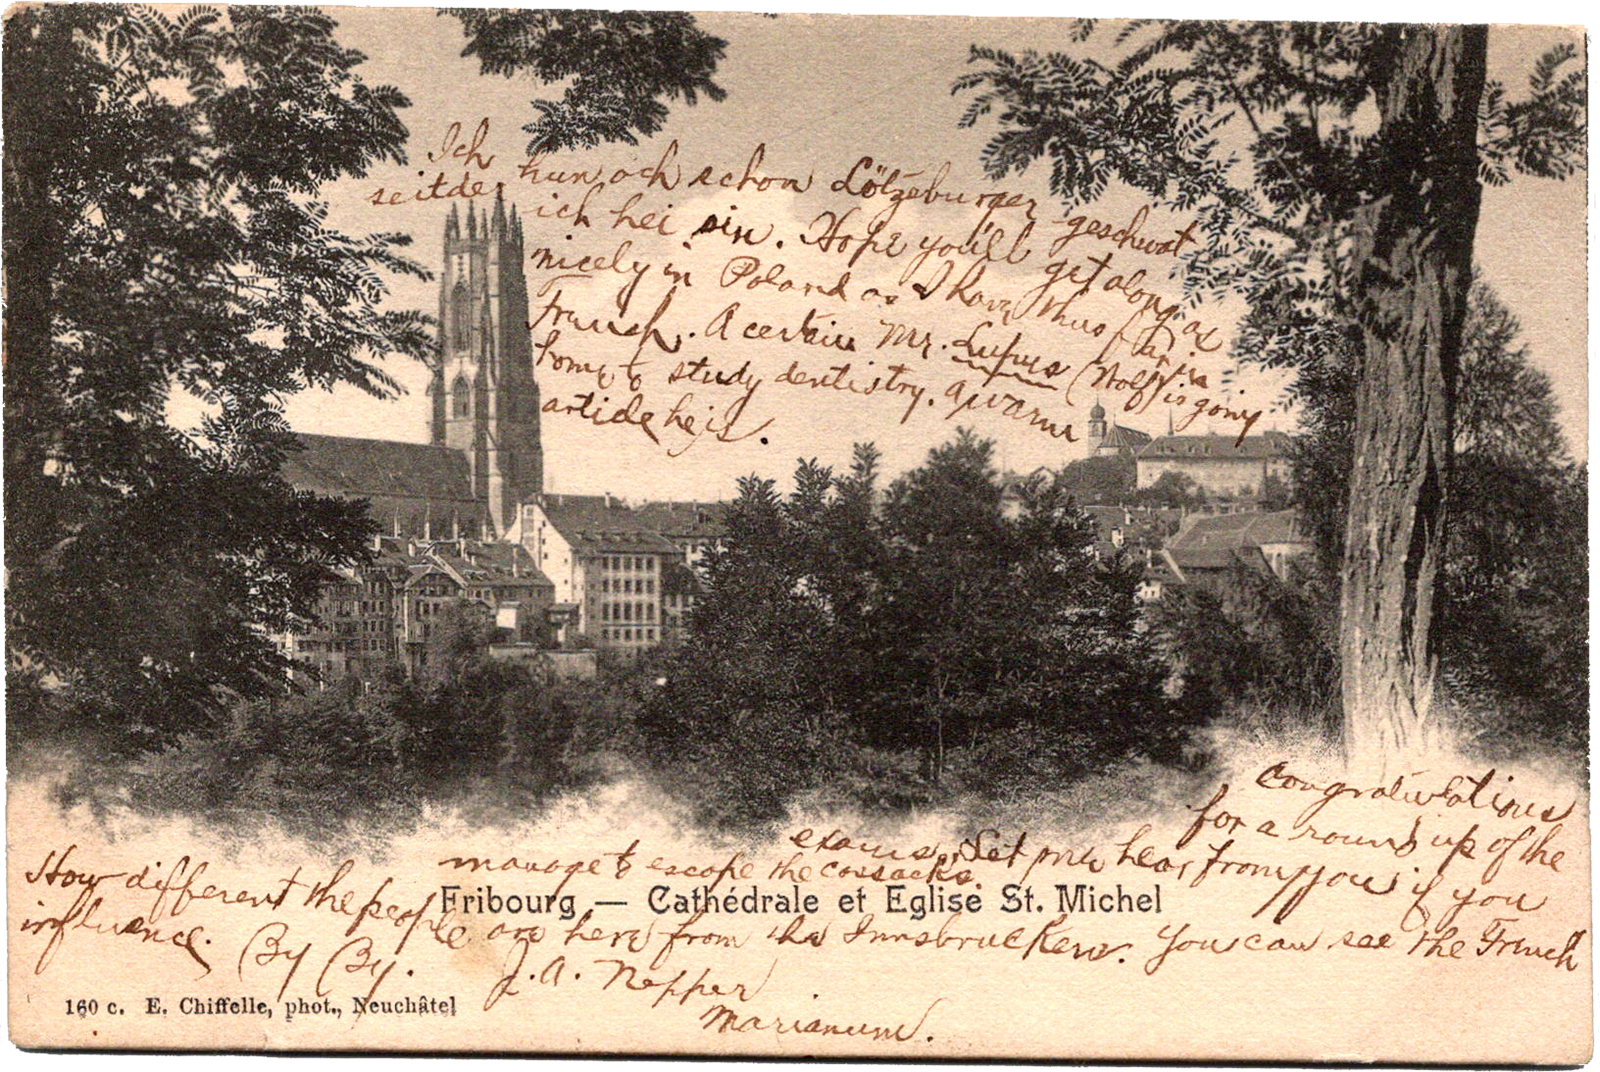 Ich hun och schon Lötzeburger geschwat
seitdem ich hei sin. Hope you'll get along as
nicely in Poland as I have thus far in
French. A certain Mr. Lupus (Wolff) is going
home to study dentistry. A warm
article he is.
Congratulations
for a round up of the
exams. Let me hear from you if you
manage to escape the cossacks.
Fribourg — Cathédrale et Eglise St. Michel
How different the people are here from the Innsbruckers. You can see the French
influence. By By. J. A. Nepper
Marianum.
160 c. E. Chiffelle, phot., Neuchâtel